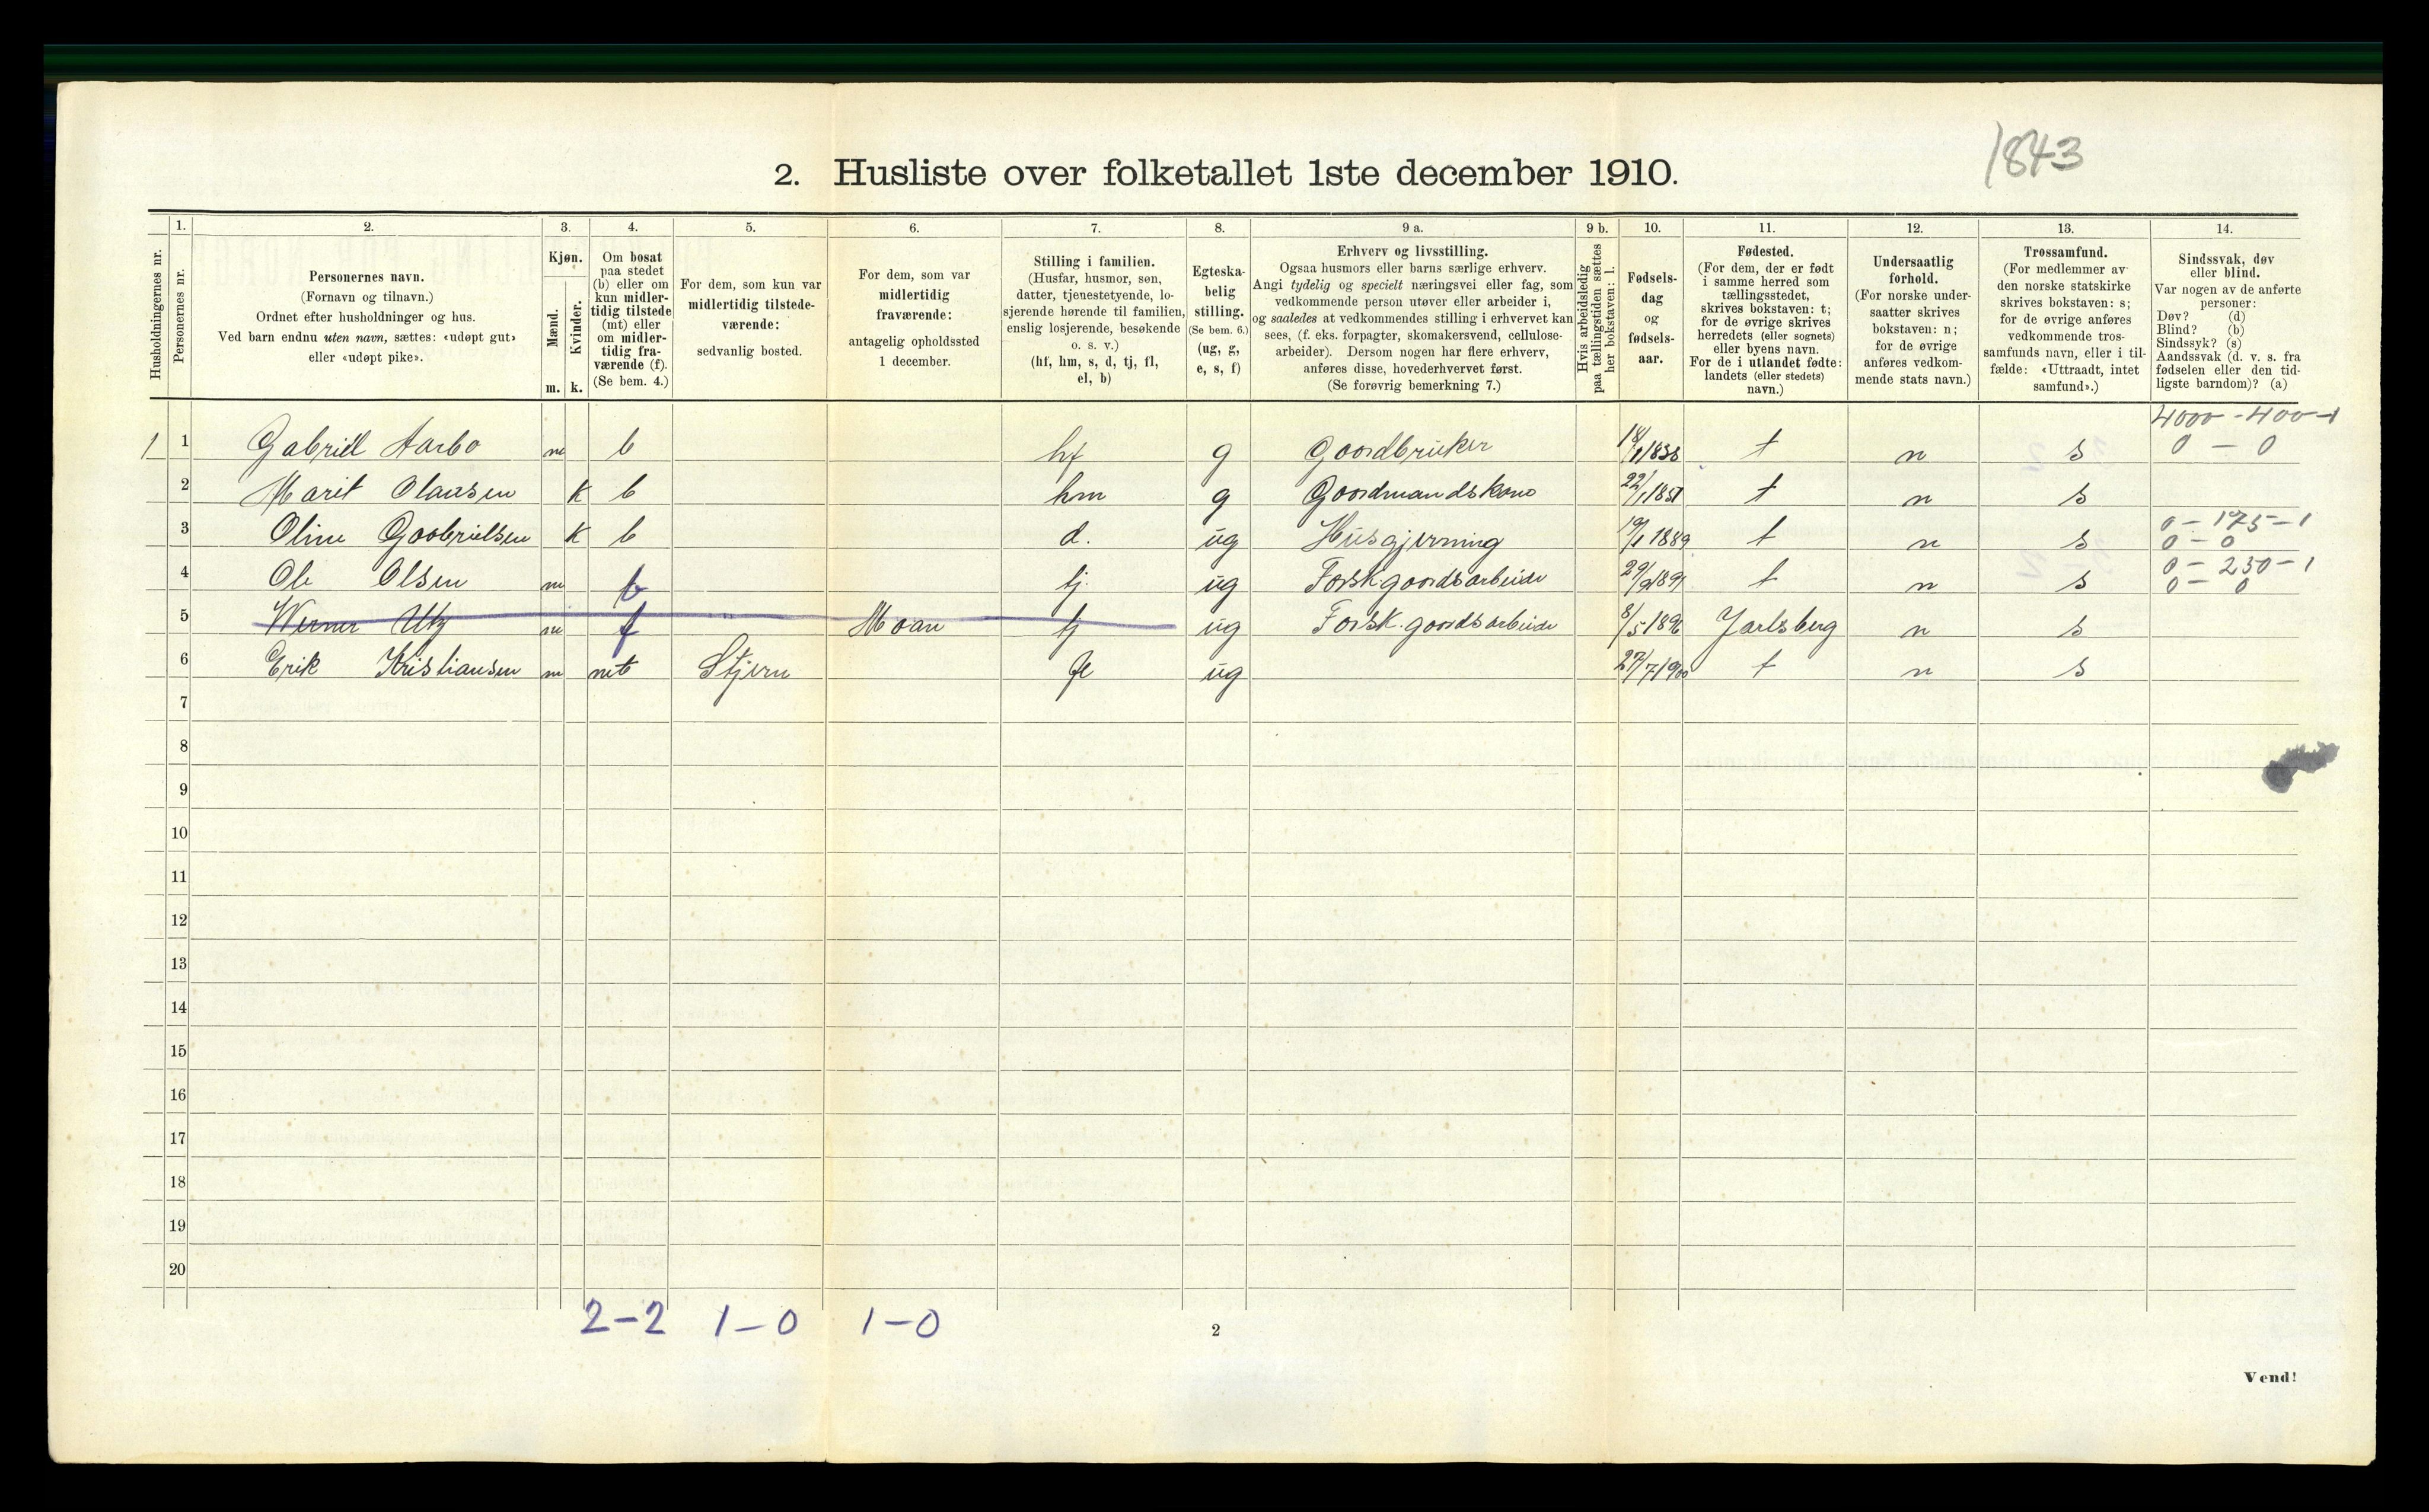 1843
2. Husliste over folketallet 1ste december 1910.
Husholdningernes nr.
1.
Personernes nr.
2.
Personernes navn.
(Fornavn og tilnavn.)
Ordnet efter husholdninger og hus.
Ved barn endnu uten navn, sættes: «udøpt gut»
eller «udøpt pike».
3.
Kjøn.
Mænd.
Kvinder.
m. k.
4.
Om bosat
paa stedet
(b) eller om
kun midler-
tidig tilstede
(mt) eller
om midler-
tidig fra-
værende (f).
(Se bem. 4.)
5.
For dem, som kun var
midlertidig tilstede-
værende:
sedvanlig bosted.
6.
For dem, som var
midlertidig
fraværende:
antagelig opholdssted
1 december.
7.
Stilling i familien.
(Husfar, husmor, søn,
datter, tjenestetyende, lo-
sjerende hørende til familien,
enslig losjerende, besøkende
o. s. v.)
(hf, hm, s, d, tj, fl,
el, b)
8.
Egteska-
belig
stilling.
(Se bem. 6.)
(ug, g,
e, s, f)
9 a.
Erhverv og livsstilling.
Ogsaa husmors eller barns særlige erhverv.
Angi tydelig og specielt næringsvei eller fag, som
vedkommende person utøver eller arbeider i,
og saaledes at vedkommendes stilling i erhvervet kan
sees, (f. eks. forpagter, skomakersvend, cellulose-
arbeider). Dersom nogen har flere erhverv,
anføres disse, hovederhvervet først.
(Se forøvrig bemerkning 7.)
9 b.
Hvis arbeidsledig
paa tællingstiden sættes
her bokstaven: l.
10.
Fødsels-
dag
og
fødsels-
aar.
11.
Fødested.
(For dem, der er født
i samme herred som
tællingsstedet,
skrives bokstaven: t;
for de øvrige skrives
herredets (eller sognets)
eller byens navn.
For de i utlandet fødte:
landets (eller stedets)
navn.)
12.
Undersaatlig
forhold.
(For norske under-
saatter skrives
bokstaven: n;
for de øvrige
anføres vedkom-
mende stats navn.)
13.
Trossamfund.
(For medlemmer av
den norske statskirke
skrives bokstaven: s;
for de øvrige anføres
vedkommende tros-
samfunds navn, eller i til-
fælde: «Uttraadt, intet
samfund».)
14.
Sindssvak, døv
eller blind.
Var nogen av de anførte
personer:
Døv? (d)
Blind? (b)
Sindssyk? (s)
Aandssvak (d. v. s. fra
fødselen eller den tid-
ligste barndom)? (a)
4000 - 400 - 1
1 1 Gabriell Aarbo m b hf g Gaardbruker 18/1 1838 t n s 0 - 0
2 Marit Olausen k b hm g Gaardmandskone 22/1 1851 t n s
0 - 175 - 1
3 Oline Gaabrielsen k b d. ug Husgjerning 19/1 1889 t n s 0 - 0
0 - 250 - 1
4 Ole Olsen m b tj. ug Forsk. gaardsarbeide 29/9 1891 t n s 0 - 0
5 Werner Utz m f Moan tj ug Forsk. gaardsarbeide 8/5 1896 Jarlsberg n s
6 Erik Kristiansen m mt Stjern fl ug 27/7 1900 t n s
7
8
9
10
11
12
13
14
15
16
17
18
19
20
2-2 1-0 1-0
2
Vend!